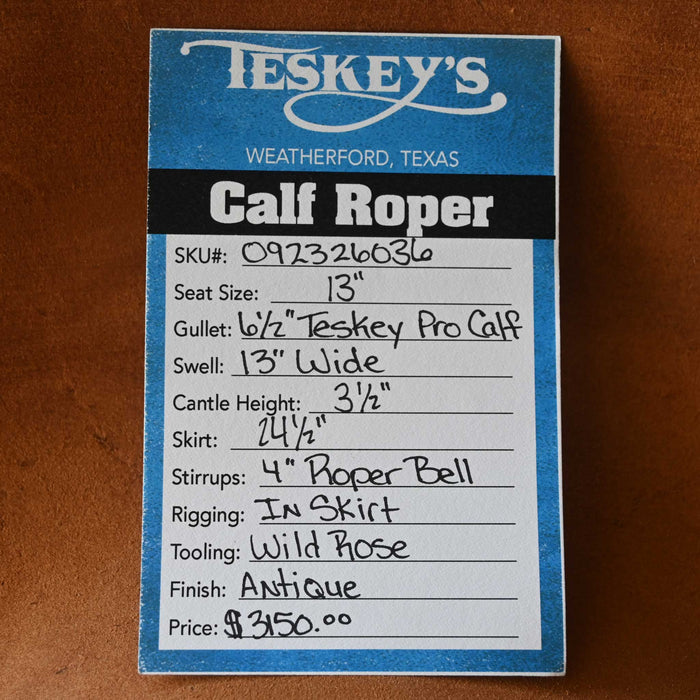 TESKEY'S
WEATHERFORD, TEXAS
Calf Roper
SKU#: 092326036
Seat Size: 13"
Gullet: 6½" Teskey Pro Calf
Swell: 13" Wide
Cantle Height: 3½"
Skirt: 24½"
Stirrups: 4" Roper Bell
Rigging: IN Skirt
Tooling: Wild Rose
Finish: Antique
Price: $3150.00